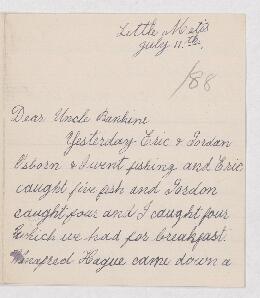 Little Metis
July 11th.
/88
Dear Uncle Rankine
Yesterday Eric & Gordon
Osborn & I went fishing and Eric
caught five fish and Gordon
caught four and I caught four
which we had for breakfast.
Winefred Hague came down a